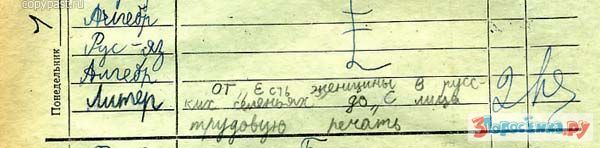 copypast.ru
1
Понедельник
Алгебр
Рус-яз
Алгебр
Литер
от „Есть женщины в русс-
ких селеньях" до „С лица
трудовую печать
2
3Dоровенька.ру